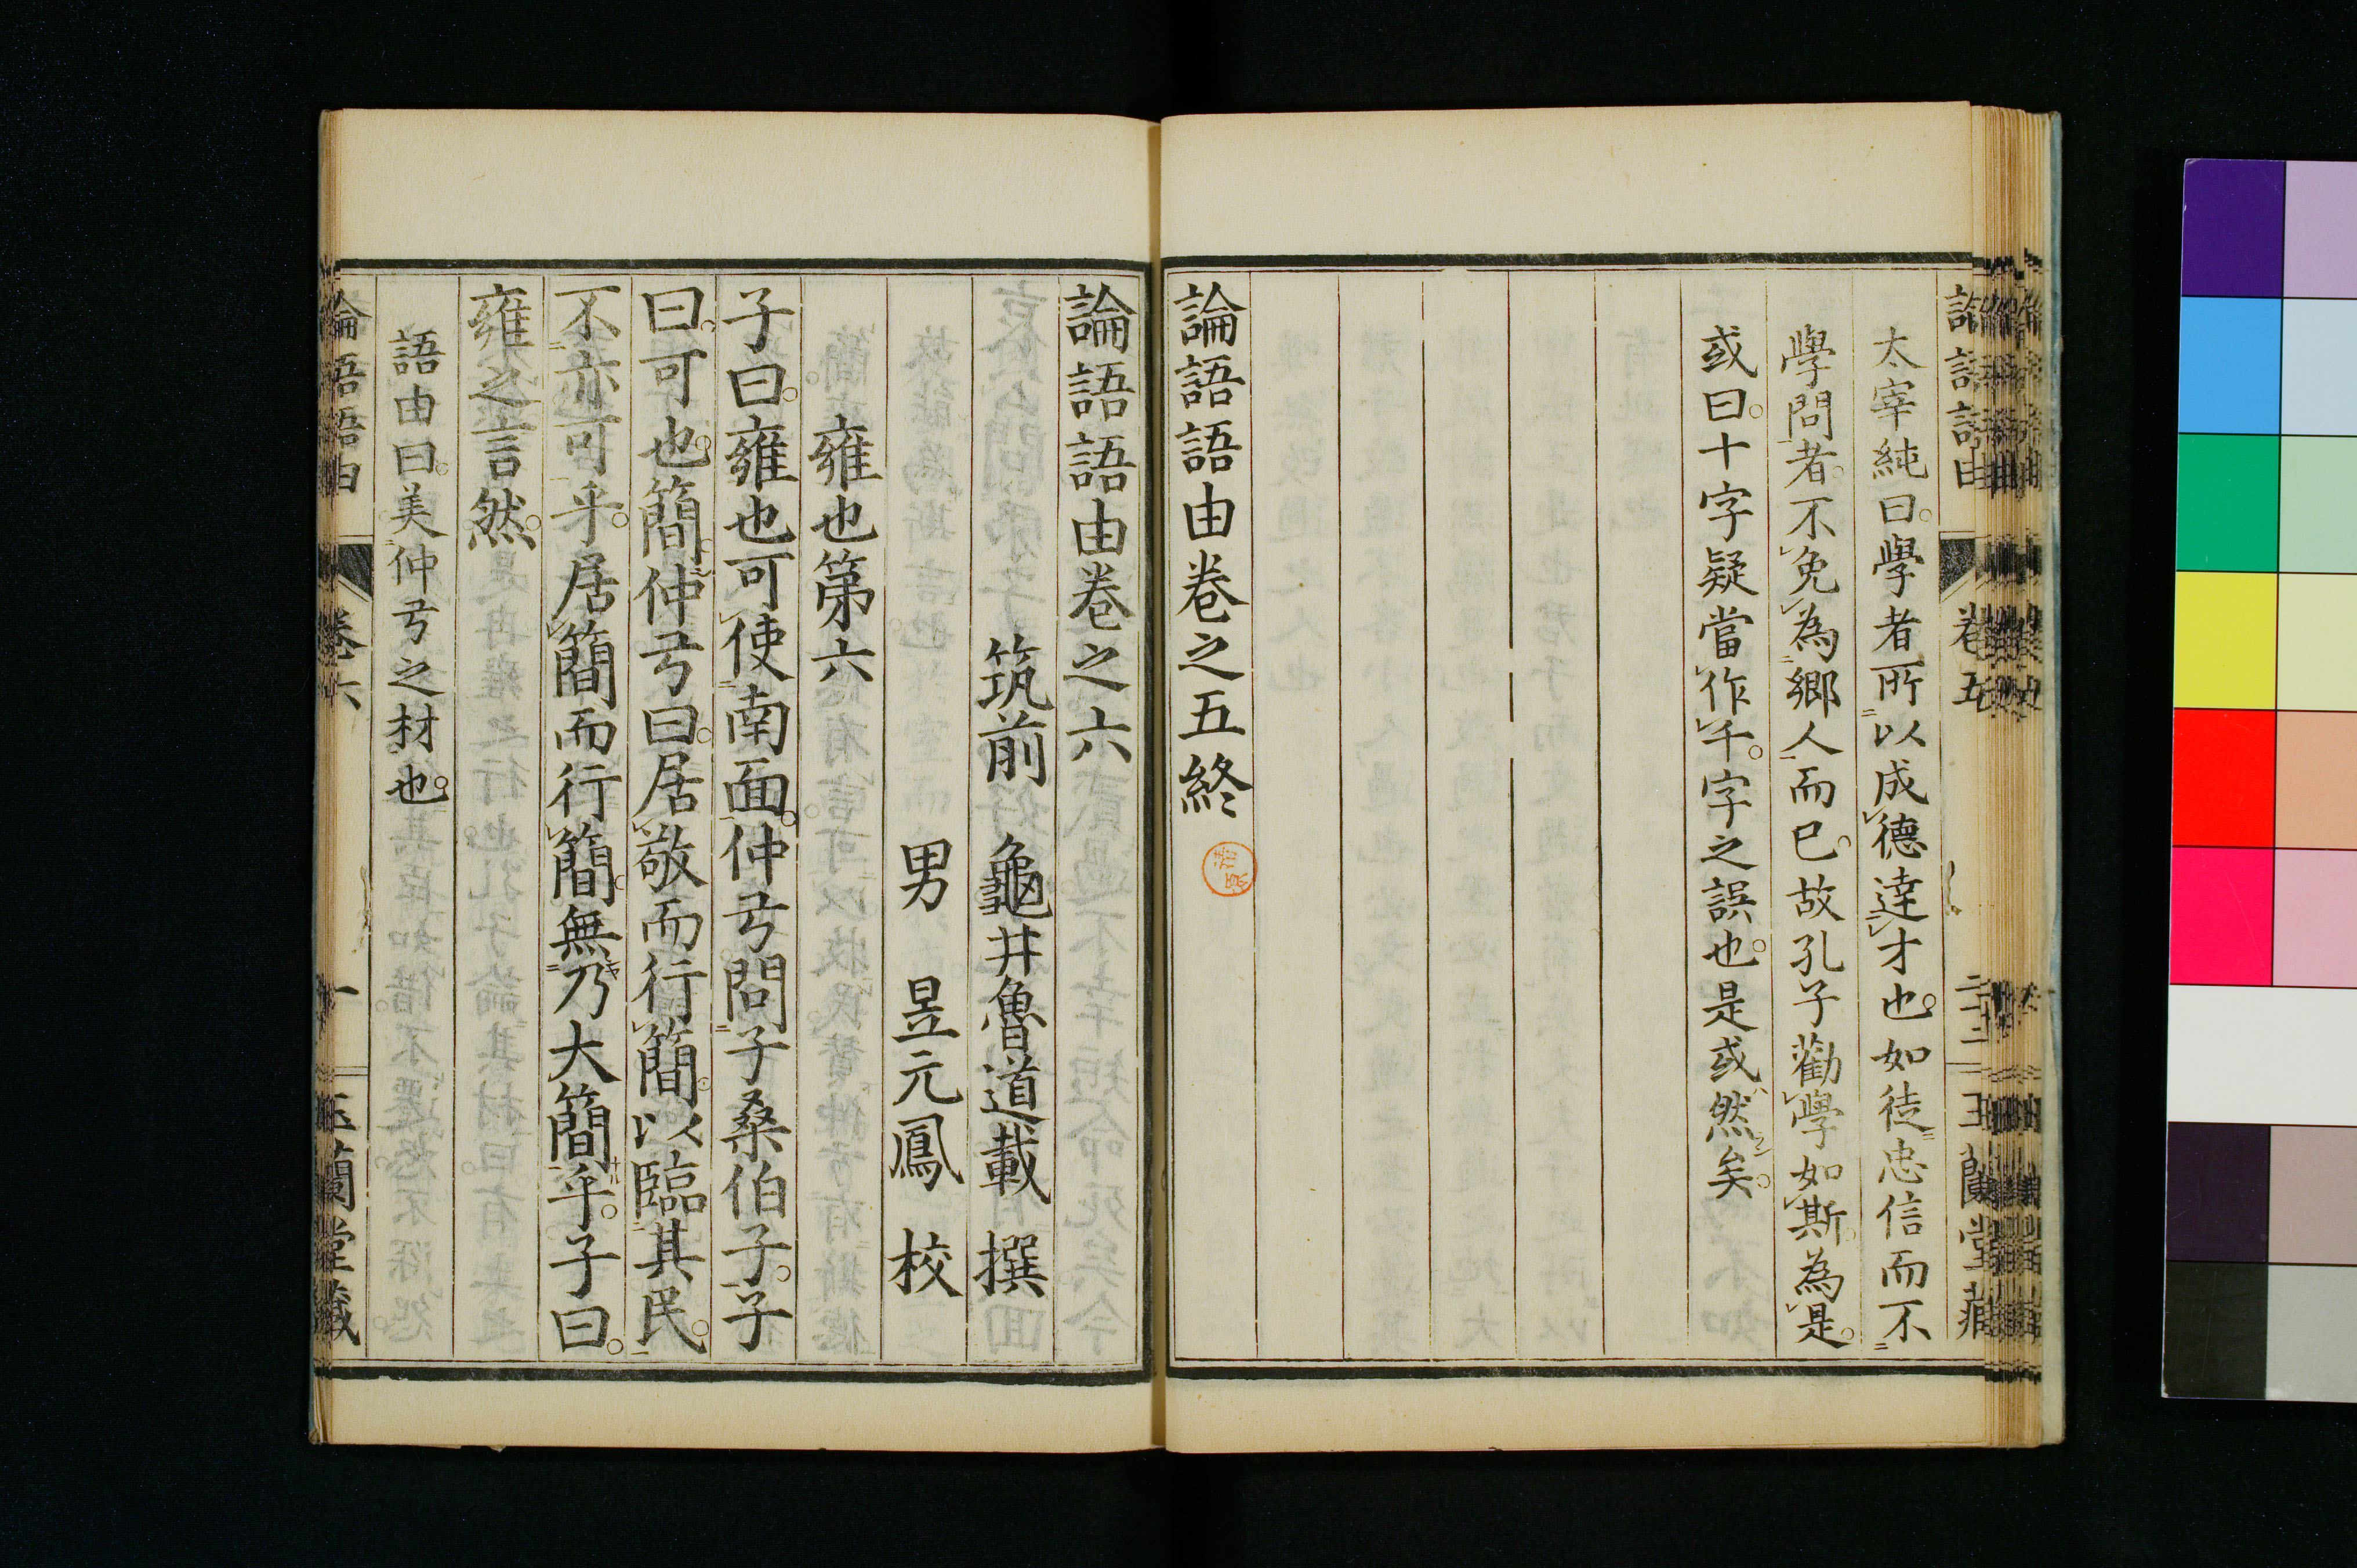 論語語由 卷五 二十二 玉蘭堂藏
太宰純曰。學者所以成德達才也。如徒忠信而不
學問者。不免為鄉人而已。故孔子勸學如斯。為是。
或曰。十字疑當作千。字之誤也。是或然矣。
論語語由卷之五終
論語語由卷之六
筑前 龜井魯道載 撰
男 昱元鳳 校
雍也第六
子曰。雍也可使南面。仲弓問子桑伯子。子
曰。可也。簡。仲弓曰。居敬而行簡。以臨其民。
不亦可乎。居簡而行簡。無乃大簡乎。子曰。
雍之言然。
語由曰。美仲弓之材也。
論語語由 卷六 一 玉蘭堂藏